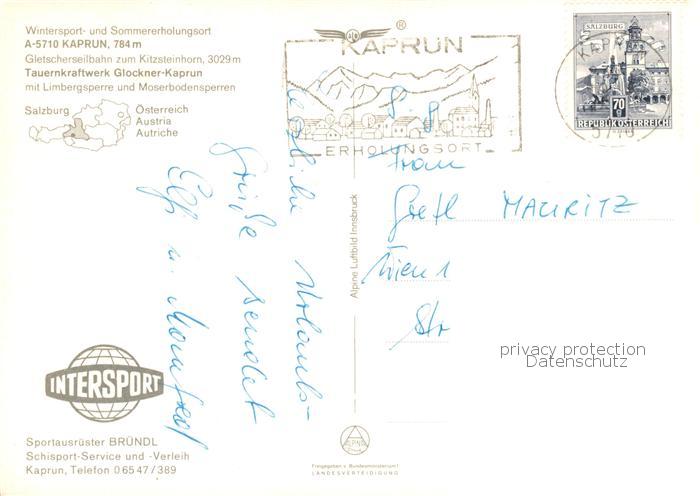 Wintersport- und Sommererholungsort
A-5710 KAPRUN, 784 m
Gletscherseilbahn zum Kitzsteinhorn, 3029 m
Tauernkraftwerk Glockner-Kaprun
mit Limbergsperre und Moserbodensperren
Salzburg
Österreich
Austria
Autriche
®
KAPRUN
ERHOLUNGSORT
SALZBURG
70
g
REPUBLIK ÖSTERREICH
KAPRUN
5710
Herzliche Urlaubs-
grüße sendet
Elfi u. Manfred
Alpine Luftbild Innsbruck
Frau
Gretl MAURITZ
Wien 1
Str
privacy protection
Datenschutz
INTERSPORT
Sportausrüster BRÜNDL
Schisport-Service und -Verleih
Kaprun, Telefon 0 65 47 / 389
ALPINE
Freigegeben v. Bundesministerium f.
LANDESVERTEIDIGUNG